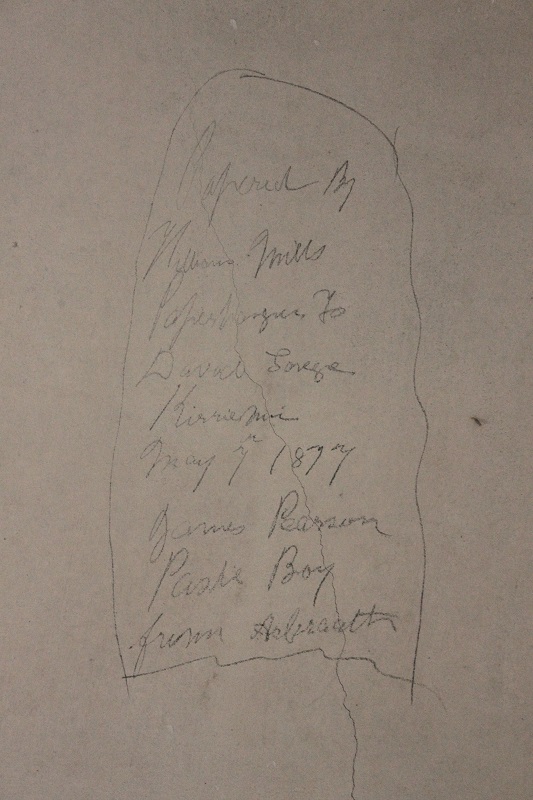 Papered By
William Mills
Paperhanger To
David
Kirriemuir
May 7th 1877
James Pearson
Paste Boy
from Arbroath